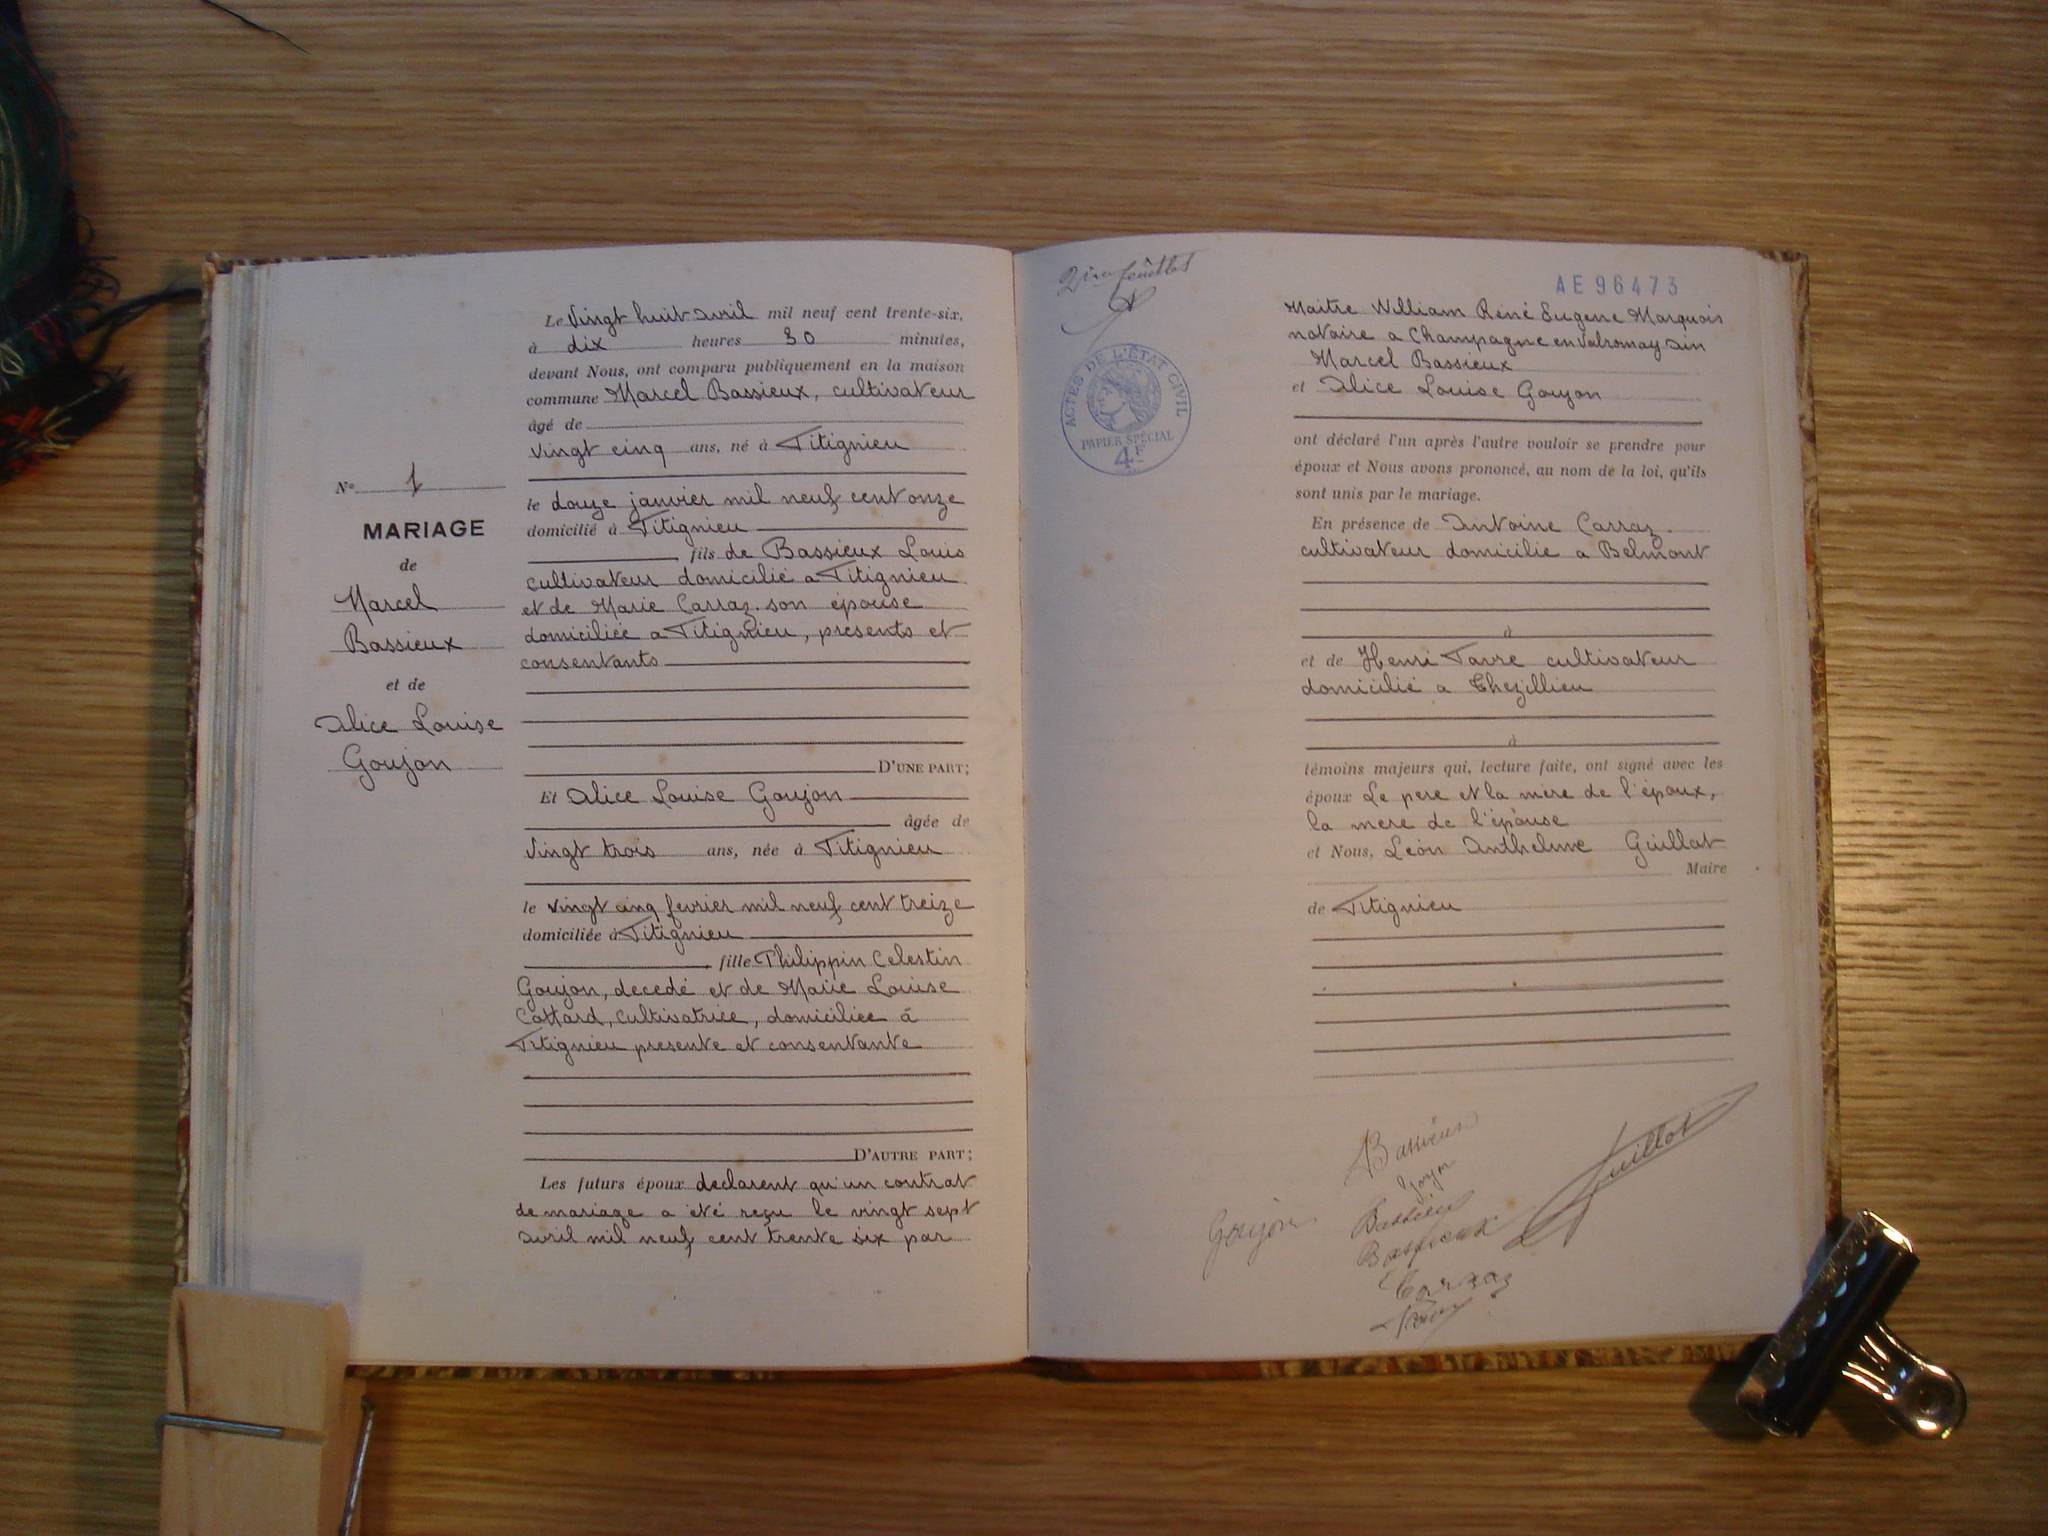 Le Vingt huit avril mil neuf cent trente-six,
à dix heures 30 minutes,
devant Nous, ont comparu publiquement en la maison
commune Marcel Bassieux, cultivateur
âgé de
vingt cinq ans, né à Titignieu
le douze janvier mil neuf cent onze
domicilié à Titignieu
fils de Bassieux Louis
cultivateur domicilié a Titignieu
et de Marie Carraz son épouse
domiciliée a Titignieu, presents et
consentants
D'UNE PART;
Et Alice Louise Goujon
âgée de
Vingt trois ans, née à Titignieu
le vingt cinq fevrier mil neuf cent treize
domiciliée à Titignieu
fille Philippin Celestin
Goujon, decedé et de Marie Louise
Cottard, cultivatrice, domiciliee à
Titignieu presente et consentante
D'AUTRE PART;
Les futurs époux declarent qu'un contrat
de mariage a été reçu le vingt sept
avril mil neuf cent trente six par
N° 1
MARIAGE
de
Marcel
Bassieux
et de
Alice Louise
Goujon
ACTES DE L'ÉTAT CIVIL
PAPIER SPÉCIAL
4F
AE96473
Maitre William René Eugene Marquois
notaire a Champagne en Valromay Ain
Marcel Bassieux
et Alice Louise Goujon
ont déclaré l'un après l'autre vouloir se prendre pour
époux et Nous avons prononcé, au nom de la loi, qu'ils
sont unis par le mariage.
En présence de Antoine Carraz
cultivateur domicilie a Belmont
à
et de Henri Tavre cultivateur
domicilié a Thezillieu
à
témoins majeurs qui, lecture faite, ont signé avec les
époux Le pere et la mere de l'époux,
la mere de l'épouse
et Nous, Leon Anthelme Guillot
Maire
de Titignieu
Bassieux
Goujon
Guillot
Goujon
Bassieu
Bassieux
Carraz